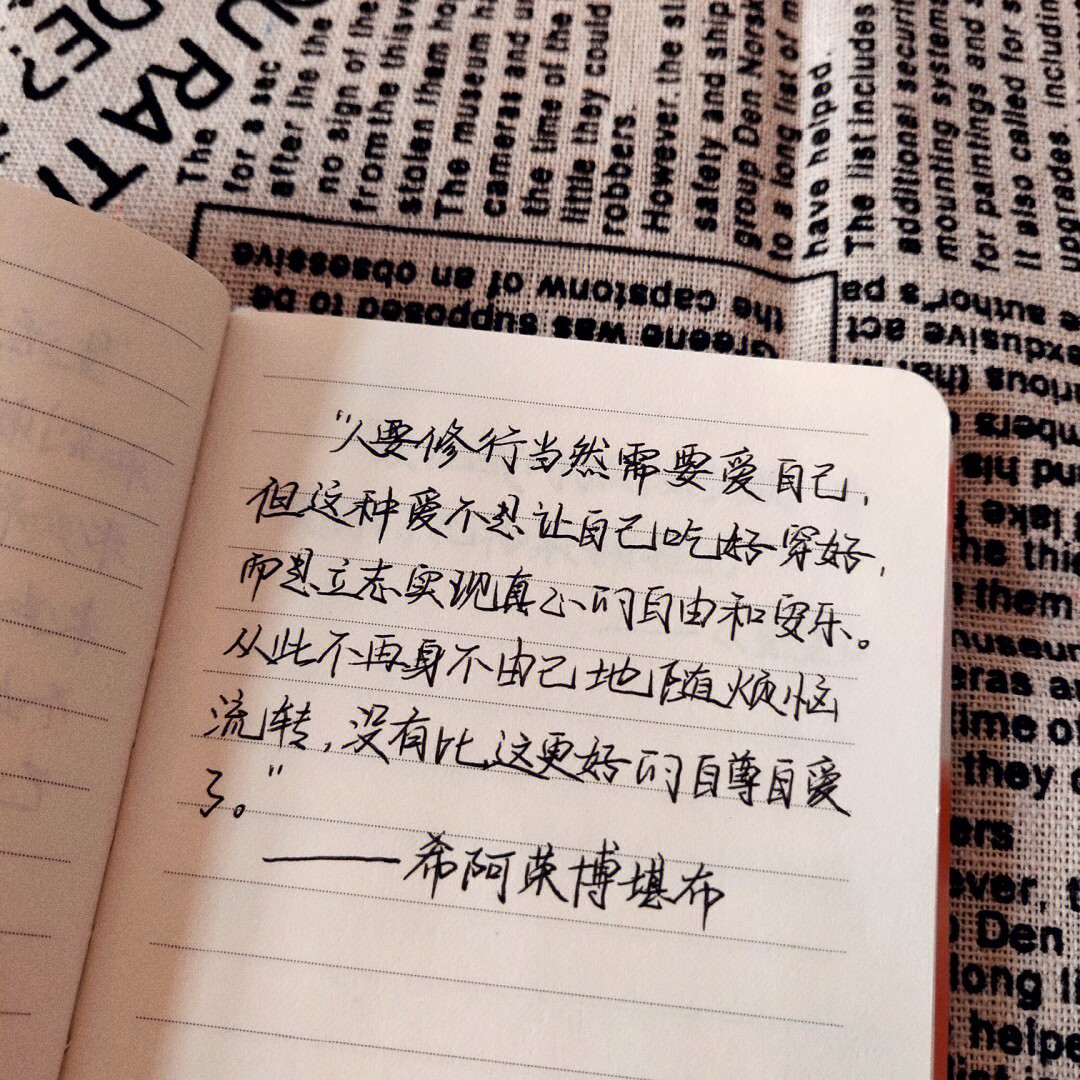 “人要修行当然需要爱自己，
但这种爱不是让自己吃好穿好，
而是立志实现真正的自由和安乐。
从此不再身不由己地随烦恼
流转，没有比这更好的自尊自爱
了。”
——希阿荣博堪布
OUR
DE?
RATI
The
for a sec
after the the
no sign of the
from the thisve
stolen them ho
The museum ha
cameras and un
the time of the
little they could
robbers.
However, the si
safety and ship
group Den Norsk
to a long list of m
have helped.
The list includes
additional securit
mounting systems
for paintings and s
It also called for s
upgrades, including
the capstonw of an obsessive
Greene was supposed to be
e author's pa
exdusive act
rious that
mbers
und his
take
he thie
them
museum
eras a
time o
they
ers
ever, t
Den
long li
helpe